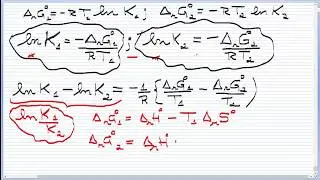 ΔrG°1 = -RT1 ln K1 ; ΔrG°2 = -RT2 ln K2
ln K1 = -ΔrG°1/RT1 ; ln K2 = -ΔrG°2/RT2
ln K1 - ln K2 = -1/R { ΔrG°1/T1 - ΔrG°2/T2 }
ln K1/K2 ΔrG°1 = ΔrH° - T1 ΔrS°
ΔrG°2 = ΔrH°